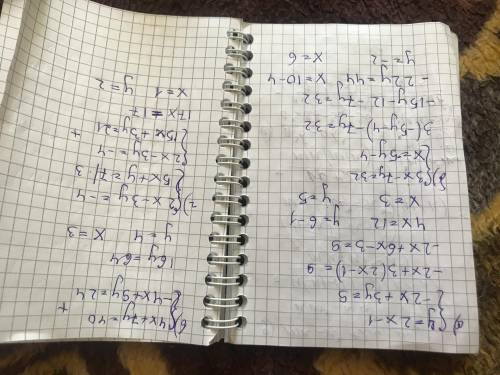 а) { y = 2x - 1
{ -2x + 3y = 9
-2x + 3(2x - 1) = 9
-2x + 6x - 3 = 9
4x = 12 y = 6 - 1
x = 3 y = 5
б) { 3x - 7y = 32
{ x = -5y - 4
3(-5y - 4) - 7y = 32
-15y - 12 - 7y = 32
-22y = 44 x = 10 - 4
y = -2 x = 6
в) { 4x + 7y = 40 +
{ -4x + 9y = 24
16y = 64
y = 4 x = 3
г) { 2x - 3y = -4
{ 5x + y = 7 | 3
{ 2x - 3y = -4 +
{ 15x + 3y = 21
17x = 17
x = 1 y = 2